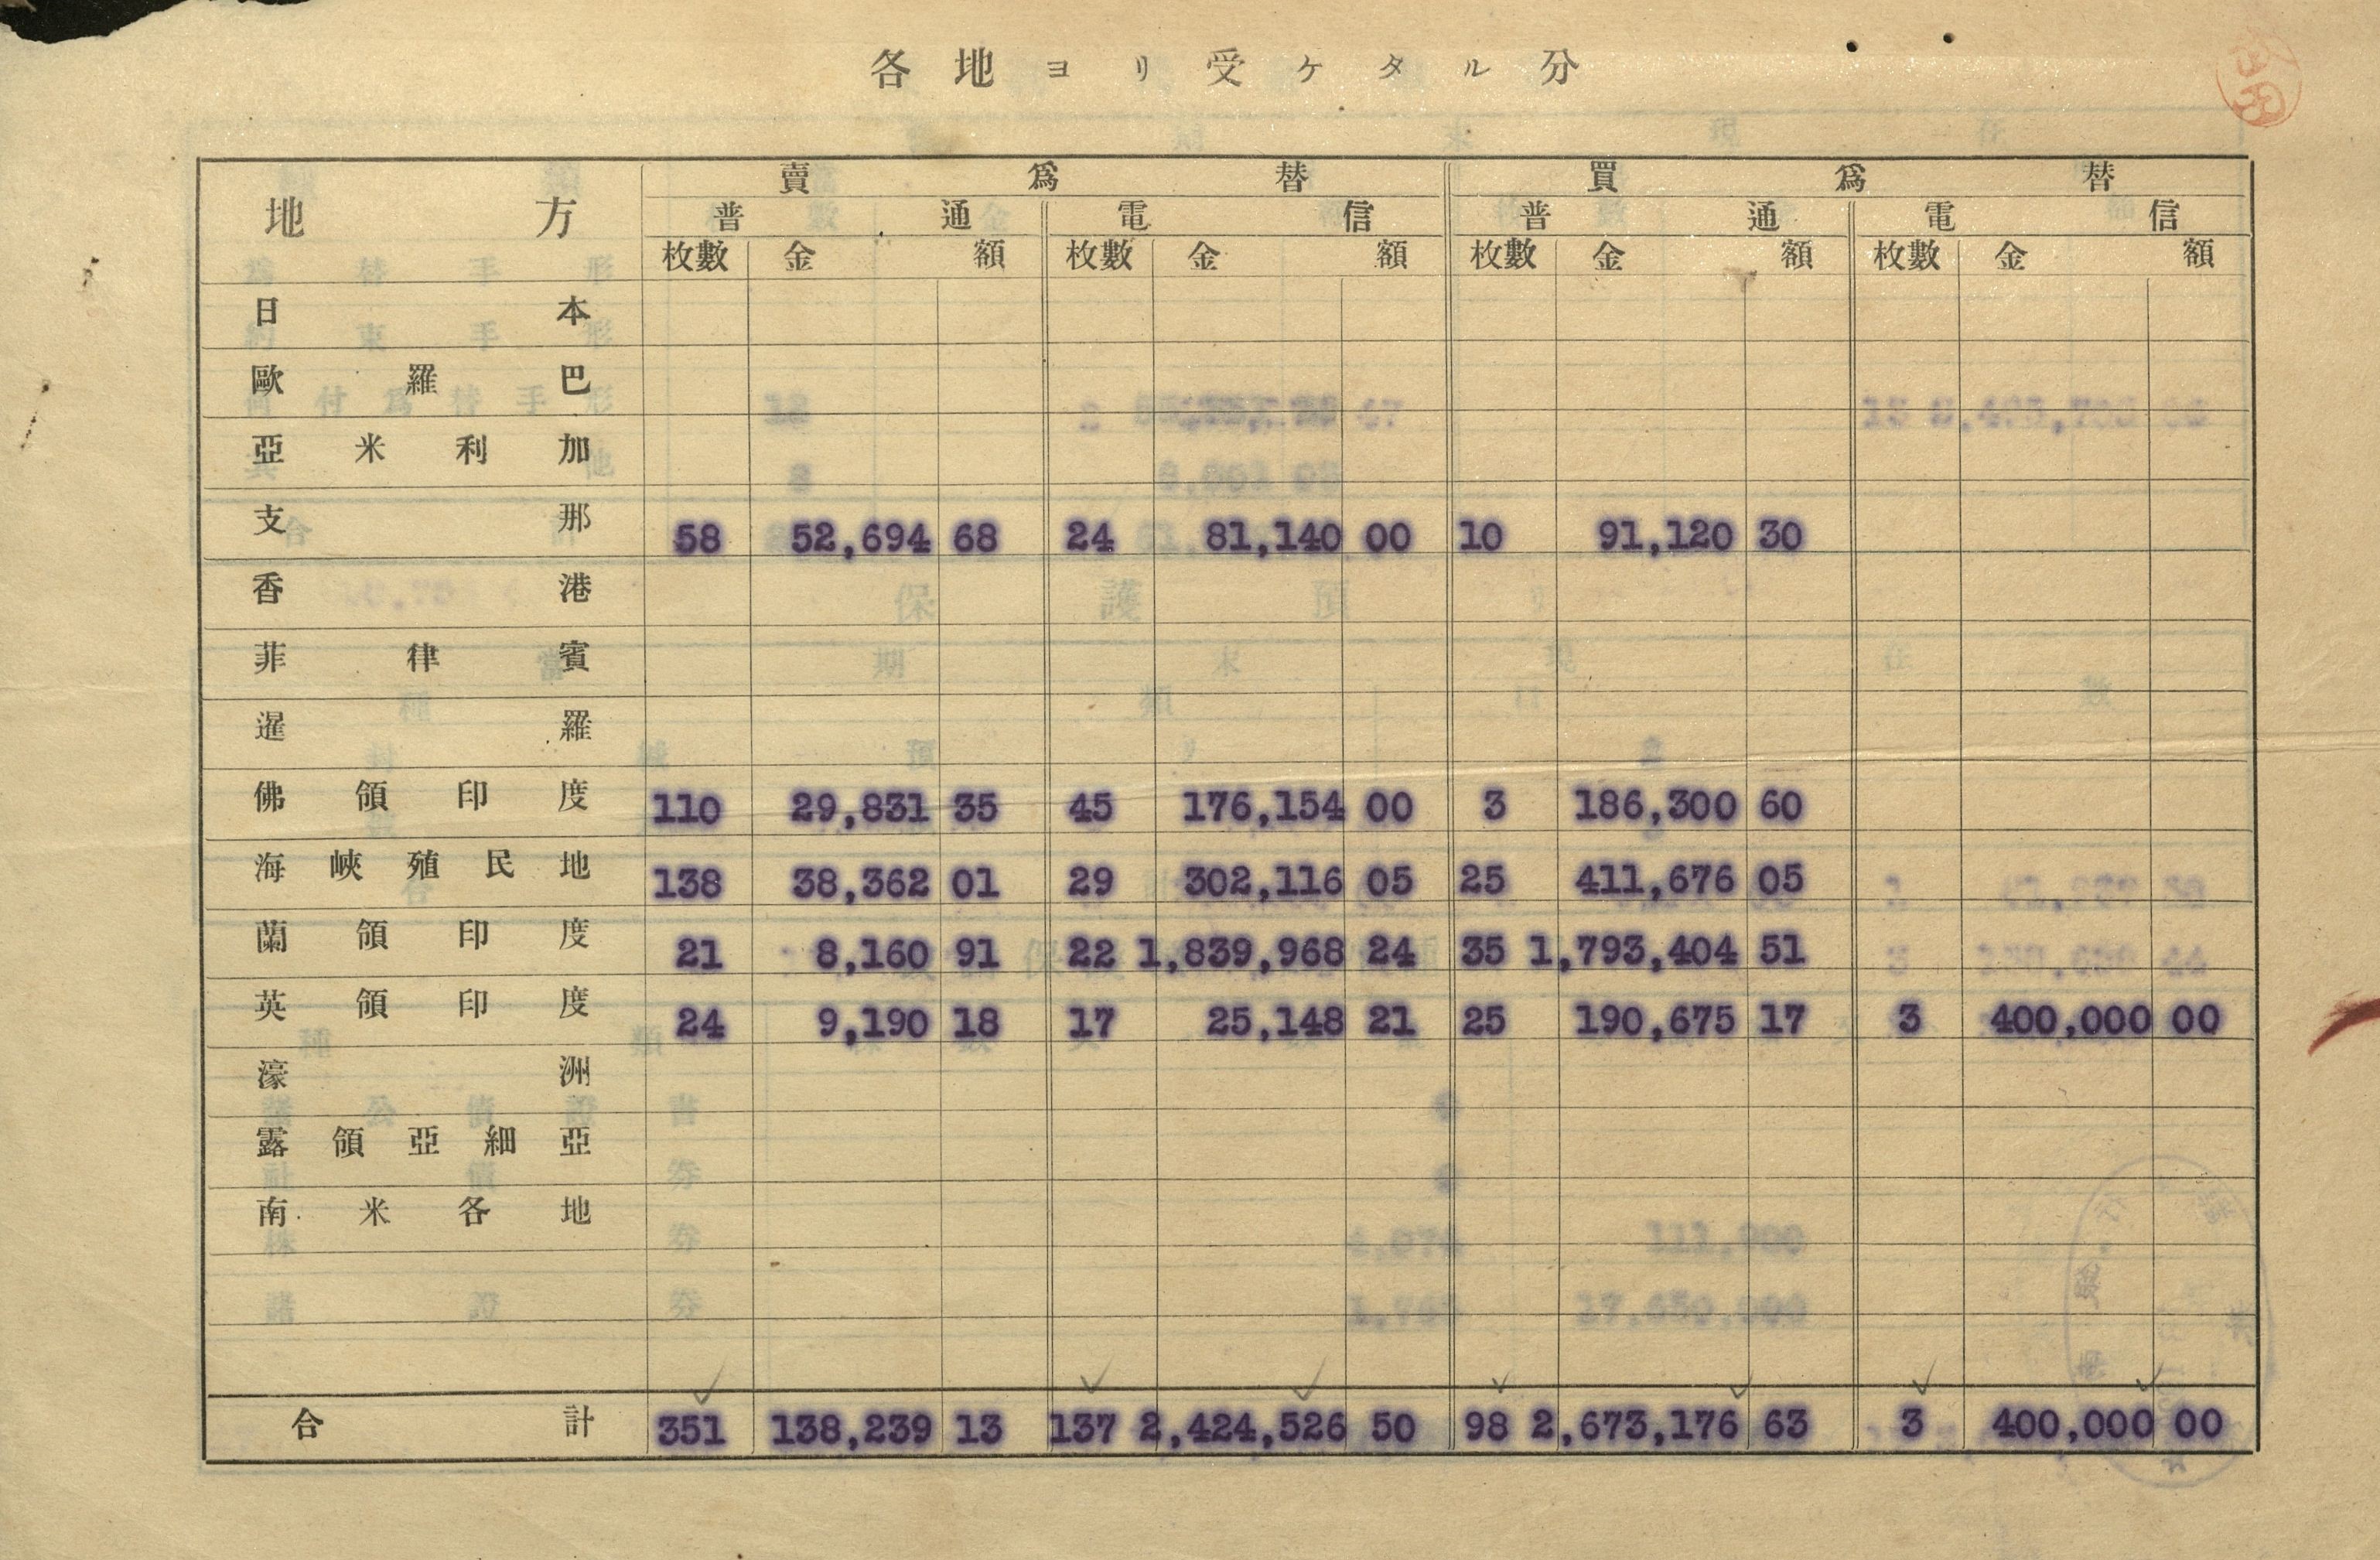 各地ヨリ受ケタル分
地方 賣爲替 買爲替
普通 電信 普通 電信
枚數 金額 枚數 金額 枚數 金額 枚數 金額
日本
歐羅巴
亞米利加
支那 58 52,694 68 24 81,140 00 10 91,120 30
香港
菲律賓
暹羅
佛領印度 110 29,831 35 45 176,154 00 3 186,300 60
海峽殖民地 138 38,362 01 29 302,116 05 25 411,676 05
蘭領印度 21 8,160 91 22 1,839,968 24 35 1,793,404 51
英領印度 24 9,190 18 17 25,148 21 25 190,675 17 3 400,000 00
濠洲
露領亞細亞
南米各地
合計 351 138,239 13 137 2,424,526 50 98 2,673,176 63 3 400,000 00